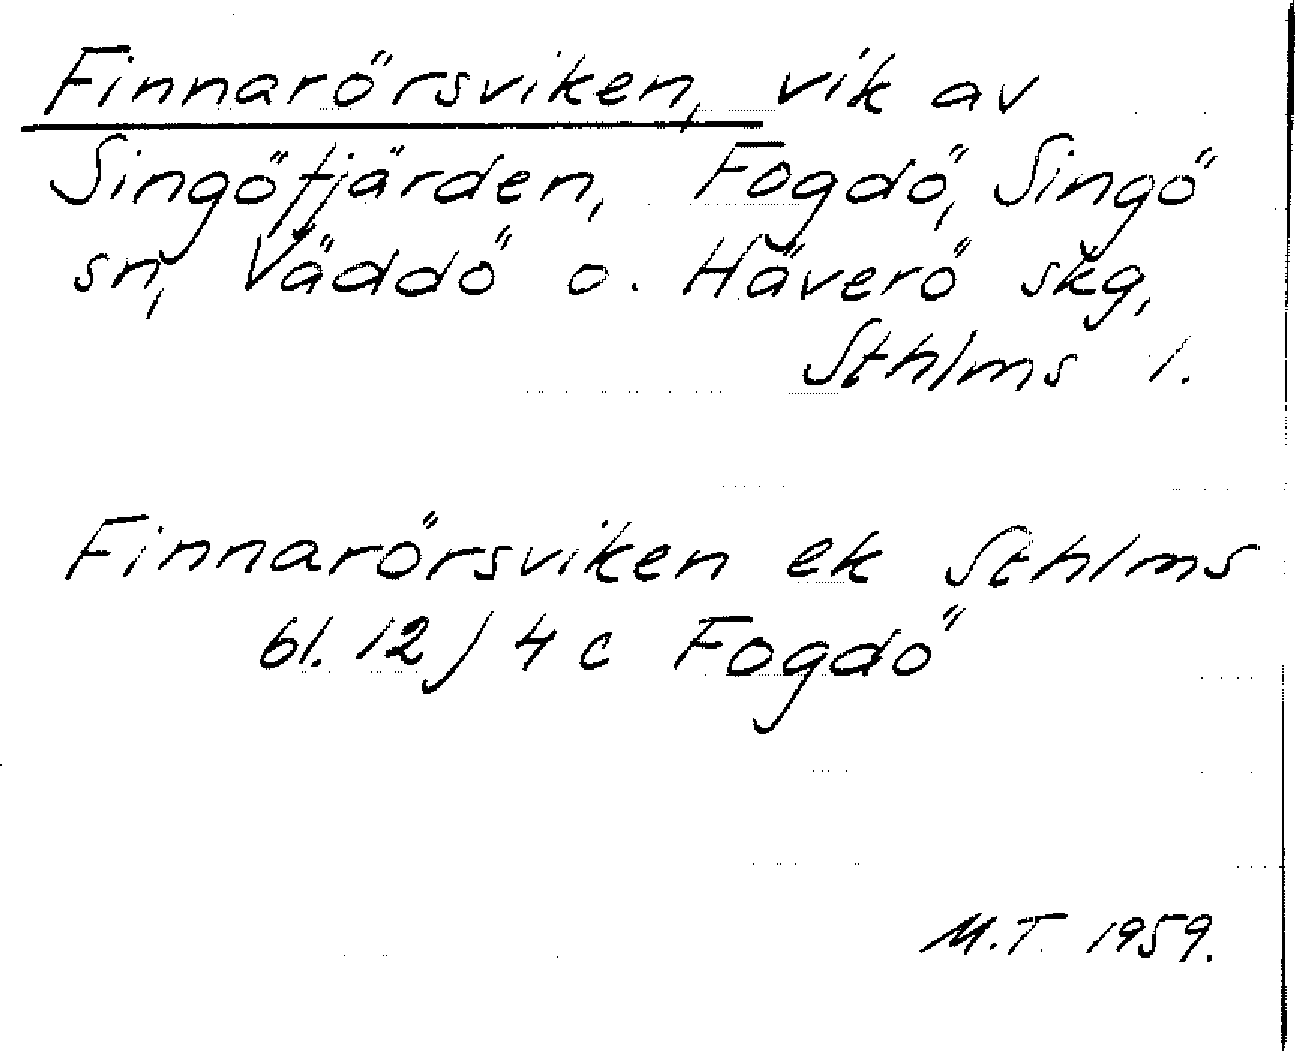 Finnarörsviken, vik av
Singöfjärden, Fogdö, Singö
sn, Väddö o. Häverö skg,
Sthlms l.
Finnarörsviken ek Sthlms
bl. 12 J 4 c Fogdö
M.T. 1959.